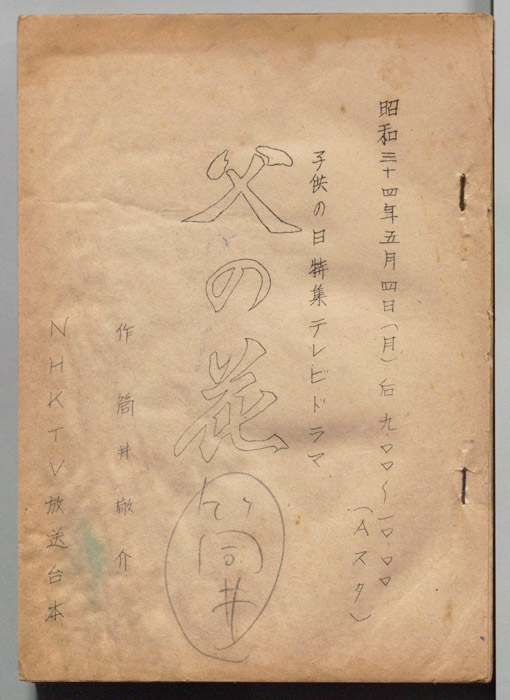 昭和三十四年五月四日(月)后九.〇〇〜一〇.〇〇
(Aスタ)
子供の日特集テレビドラマ
父の花
筒井
作 筒井敬介
NHKTV放送台本